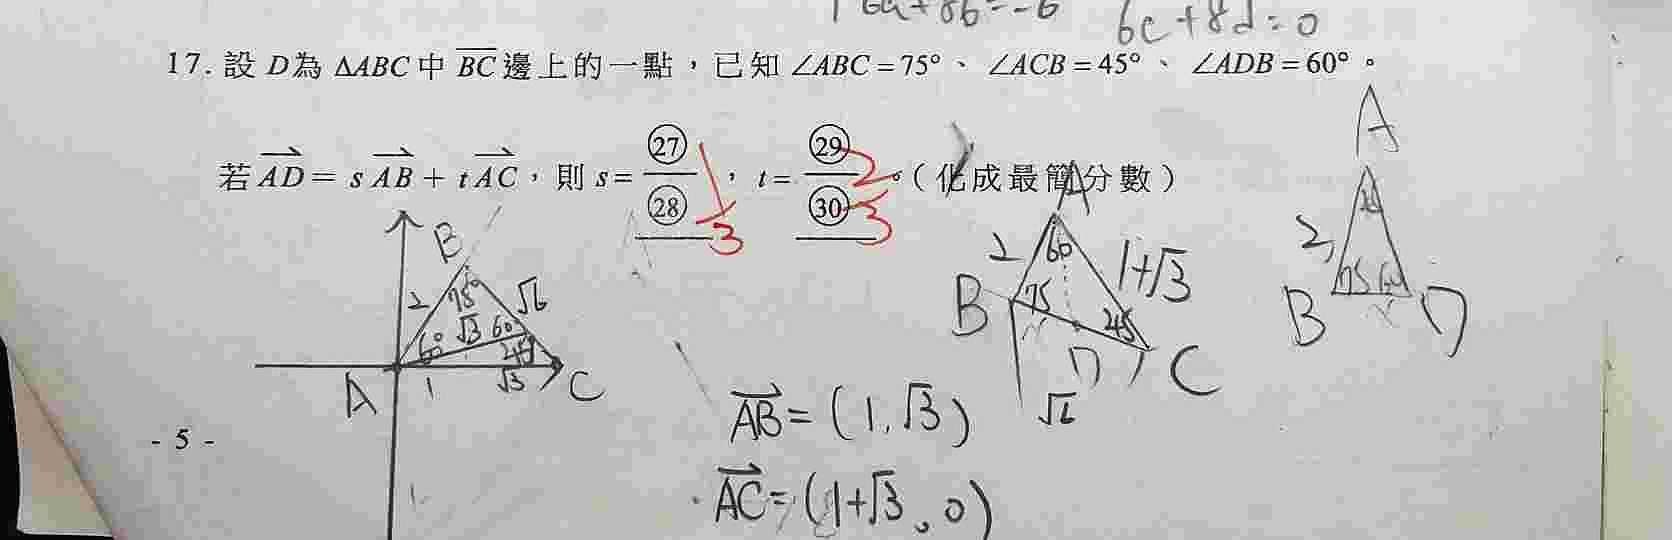 6a+8b=-6 6c+8d=0
17. 設 D為 ΔABC 中 BC 邊上的一點，已知 ∠ABC=75°、∠ACB=45°、∠ADB=60°。
若 AD = s AB + t AC，則 s= ㉗/㉘ 1/3，t= ㉙/㉚ 2/3。（化成最簡分數）
B 2 75° √6 60° √3 60° 45° A 1 √3 C
A 2 60 1+√3 B 75 45 D C √6
A 45 2 75 60 B D
AB=(1,√3)
AC=(1+√3,0)
- 5 -